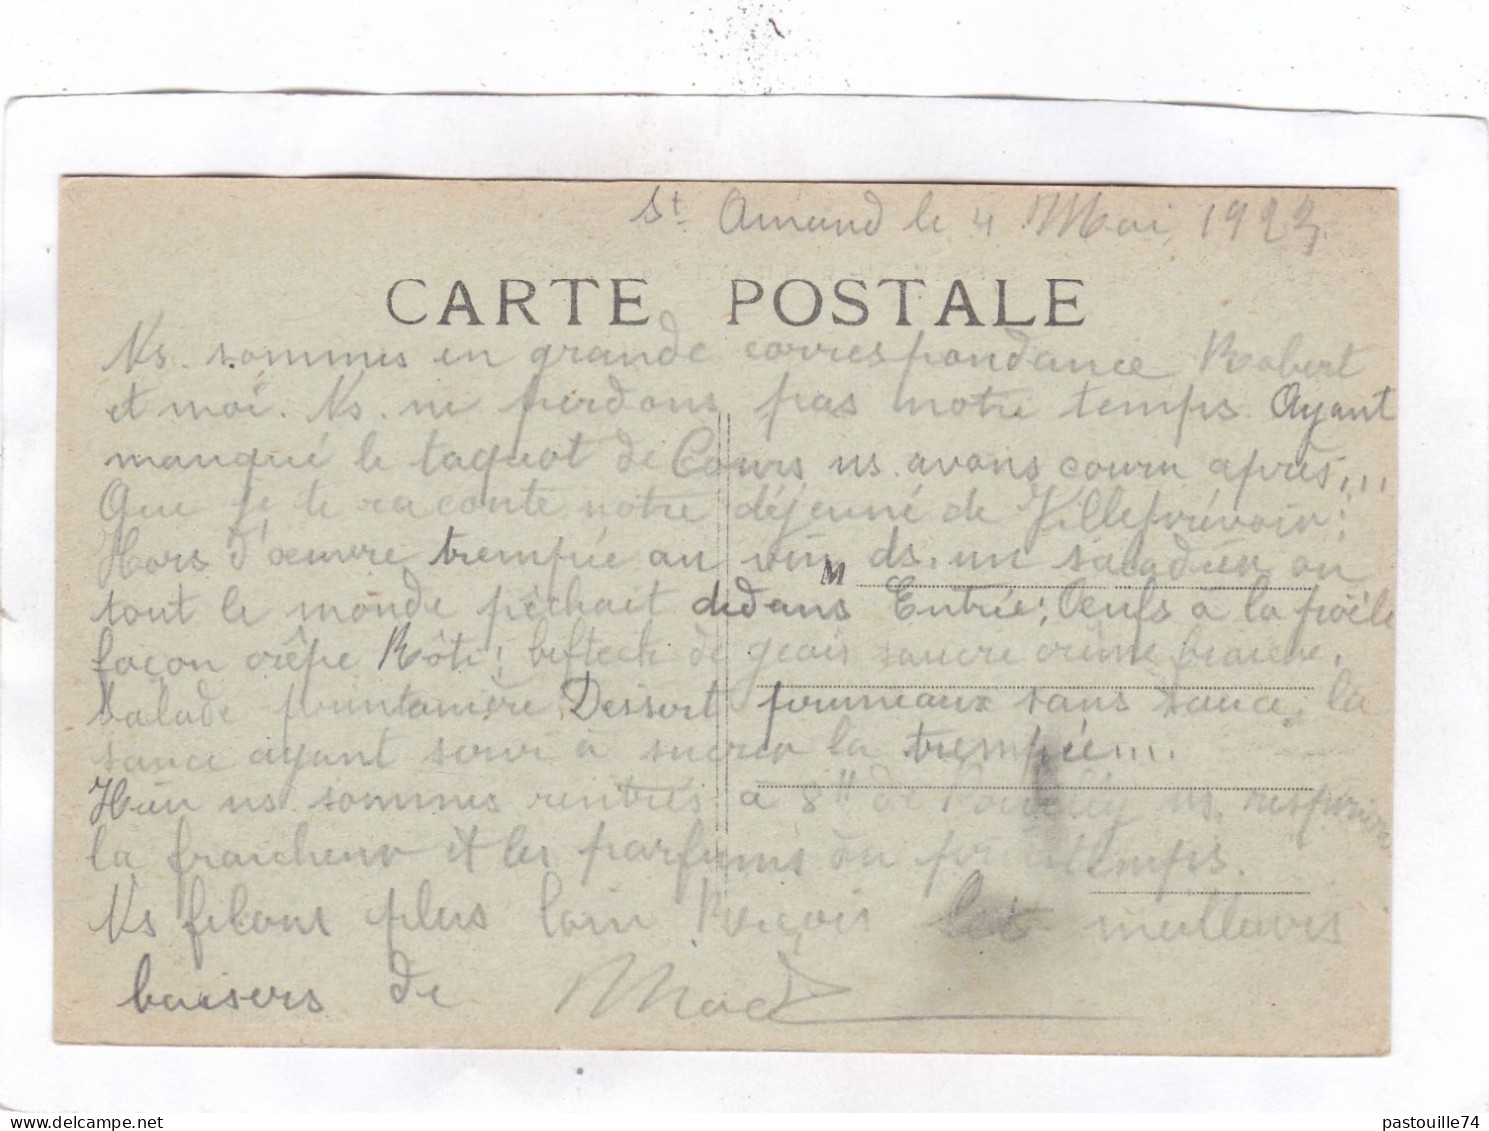 St Amand le 4 Mai 1923
CARTE POSTALE
Ns. sommes en grande correspondance Robert
et moi. Ns. ne perdons pas notre temps. Ayant
manqué le taquot de Cours ns. avons couru après...
Que je te raconte notre déjeuné de Villeprévoir:
Hors d'œuvre trempée au vin ds. un saladier ou
tout le monde pêchait dedans Entrée; Oeufs à la poële
façon crêpe Rôti; bifteck de geais sauce crème fraiche,
Salade printanière, Dessert pruneaux sans sauce, la
sauce ayant servi à sucrer la trempée...
Hier ns. sommes rentrés à 8H de ns. respirions
la fraicheur et les parfums du printemps.
Ns filons plus loin Reçois les meilleurs
baisers de Mad
M
pastouille74